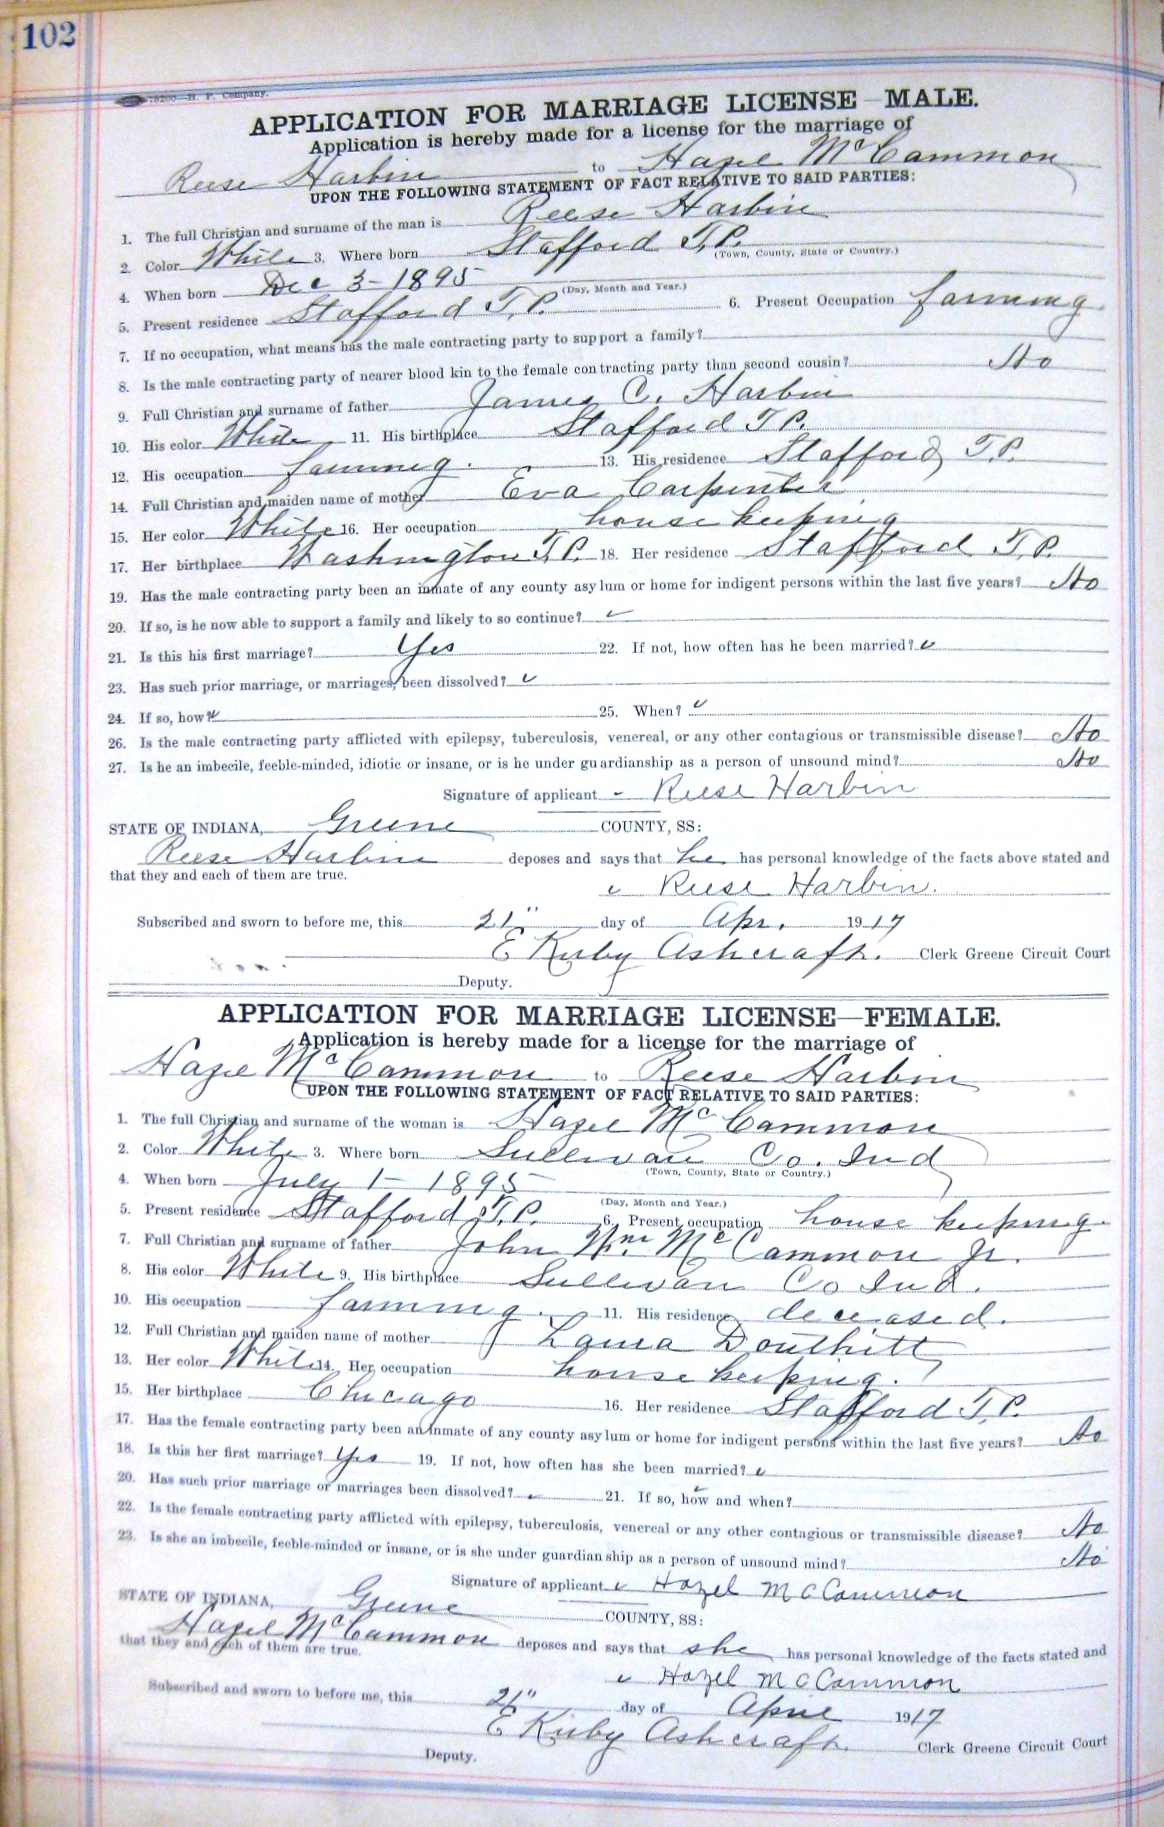 102
79200—H. P. Company.
APPLICATION FOR MARRIAGE LICENSE—MALE.
Application is hereby made for a license for the marriage of
Reese Harbin to Hazel McCammon
UPON THE FOLLOWING STATEMENT OF FACT RELATIVE TO SAID PARTIES:
1. The full Christian and surname of the man is Reese Harbin
2. Color White 3. Where born Stafford T.P.
(Town, County, State or Country.)
4. When born Dec 3 - 1895
(Day, Month and Year.)
5. Present residence Stafford T.P. 6. Present Occupation farming
7. If no occupation, what means has the male contracting party to support a family?
8. Is the male contracting party of nearer blood kin to the female contracting party than second cousin? No
9. Full Christian and surname of father James C. Harbin
10. His color White 11. His birthplace Stafford T.P.
12. His occupation farming. 13. His residence Stafford T.P.
14. Full Christian and maiden name of mother Eva Carpenter
15. Her color White 16. Her occupation house keeping
17. Her birthplace Washington T.P. 18. Her residence Stafford T.P.
19. Has the male contracting party been an inmate of any county asylum or home for indigent persons within the last five years? No
20. If so, is he now able to support a family and likely to so continue? ✓
21. Is this his first marriage? Yes 22. If not, how often has he been married? ✓
23. Has such prior marriage, or marriages, been dissolved? ✓
24. If so, how? ✓ 25. When? ✓
26. Is the male contracting party afflicted with epilepsy, tuberculosis, venereal, or any other contagious or transmissible disease? No
27. Is he an imbecile, feeble-minded, idiotic or insane, or is he under guardianship as a person of unsound mind? No
Signature of applicant Reese Harbin
STATE OF INDIANA, Greene COUNTY, SS:
Reese Harbin deposes and says that he has personal knowledge of the facts above stated and
that they and each of them are true.
✓ Reese Harbin.
Subscribed and sworn to before me, this 21" day of Apr. 1917
E Kirby Ashcraft. Clerk Greene Circuit Court
Deputy.
APPLICATION FOR MARRIAGE LICENSE—FEMALE.
Application is hereby made for a license for the marriage of
Hazel McCammon to Reese Harbin
UPON THE FOLLOWING STATEMENT OF FACT RELATIVE TO SAID PARTIES:
1. The full Christian and surname of the woman is Hazel McCammon
2. Color White 3. Where born Sullivan Co. Ind
(Town, County, State or Country.)
4. When born July 1 - 1895
(Day, Month and Year.)
5. Present residence Stafford T.P. 6. Present occupation house keeping
7. Full Christian and surname of father John Wm. McCammon Jr.
8. His color White 9. His birthplace Sullivan Co Ind.
10. His occupation farming. 11. His residence deceased.
12. Full Christian and maiden name of mother Laura Douthitt
13. Her color White 14. Her occupation house keeping.
15. Her birthplace Chicago 16. Her residence Stafford T.P.
17. Has the female contracting party been an inmate of any county asylum or home for indigent persons within the last five years? No
18. Is this her first marriage? Yes 19. If not, how often has she been married? ✓
20. Has such prior marriage or marriages been dissolved? ✓ 21. If so, how and when? ✓
22. Is the female contracting party afflicted with epilepsy, tuberculosis, venereal or any other contagious or transmissible disease? No
23. Is she an imbecile, feeble-minded or insane, or is she under guardianship as a person of unsound mind? No
Signature of applicant ✓ Hazel McCammon
STATE OF INDIANA, Greene COUNTY, SS:
Hazel McCammon deposes and says that she has personal knowledge of the facts stated and
that they and each of them are true.
✓ Hazel McCammon
Subscribed and sworn to before me, this 21" day of April 1917
E Kirby Ashcraft. Clerk Greene Circuit Court
Deputy.